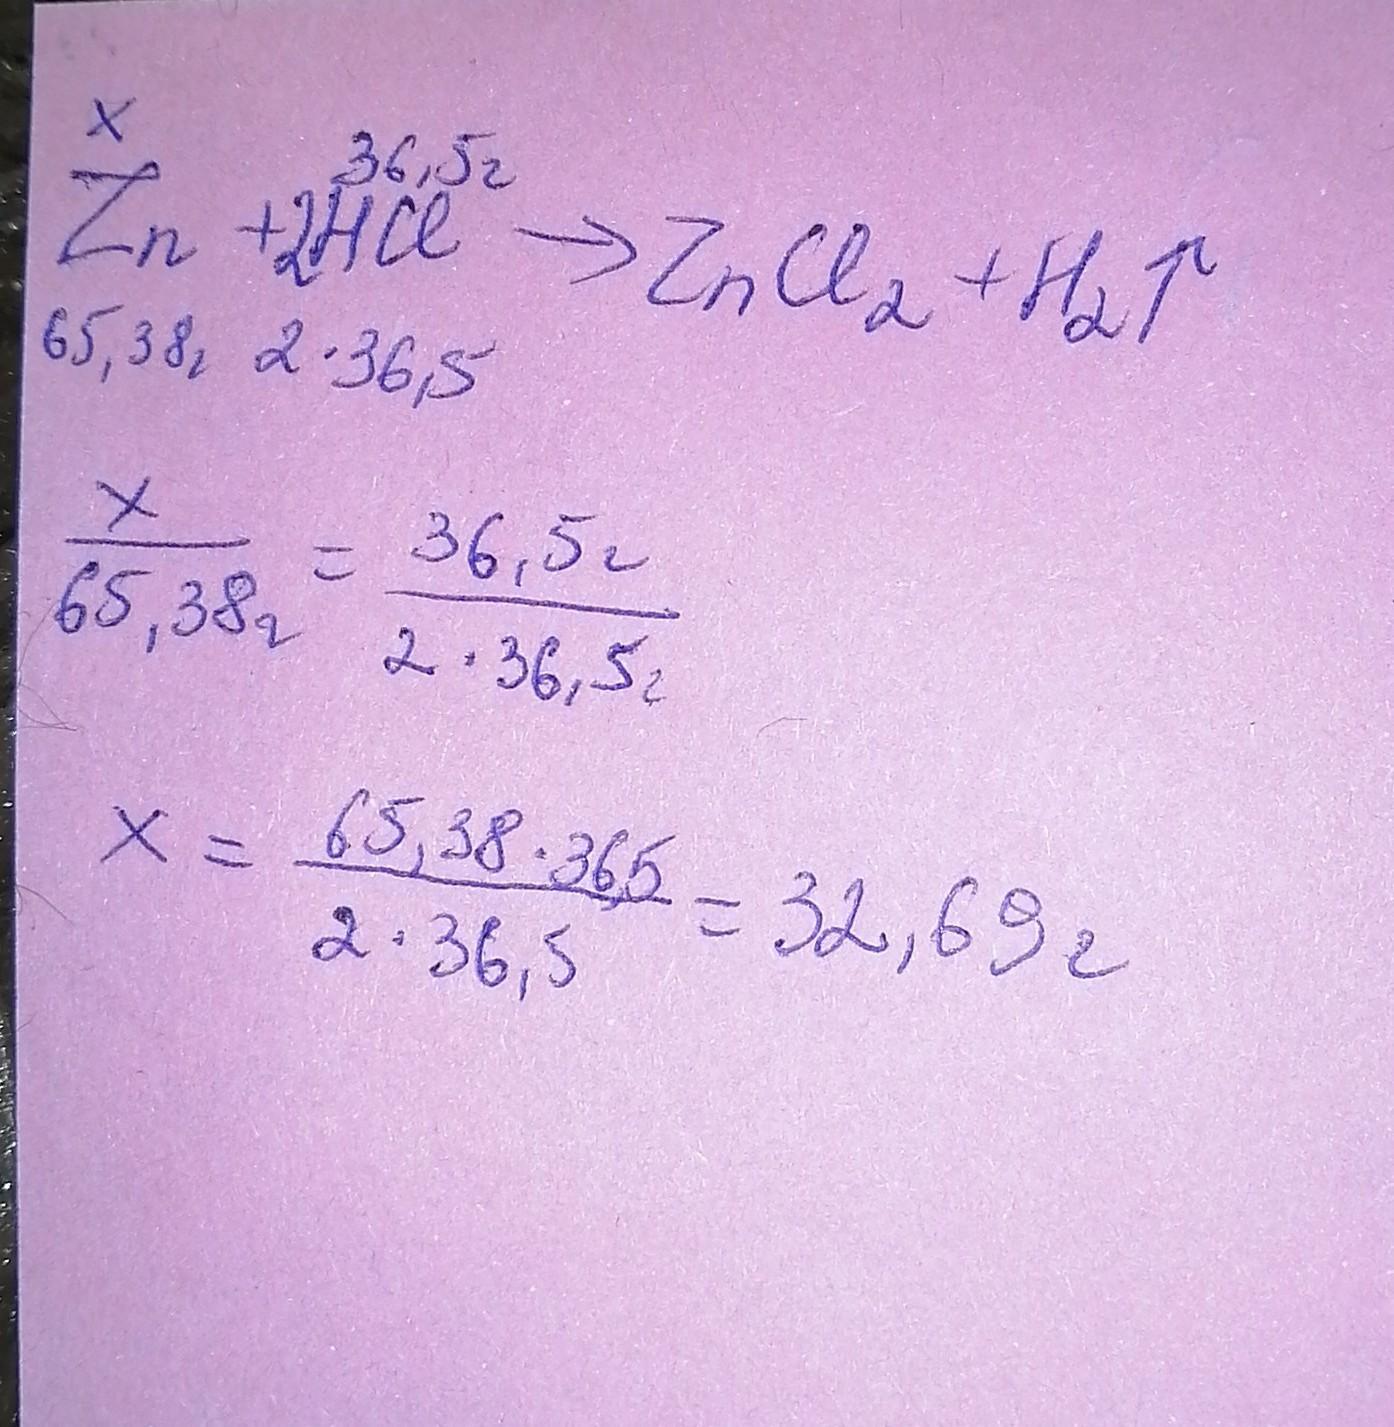 x 36,5г
Zn + 2HCl → ZnCl₂ + H₂↑
65,38г 2·36,5
x/65,38г = 36,5г/2·36,5г
x = 65,38·36,5/2·36,5 = 32,69г